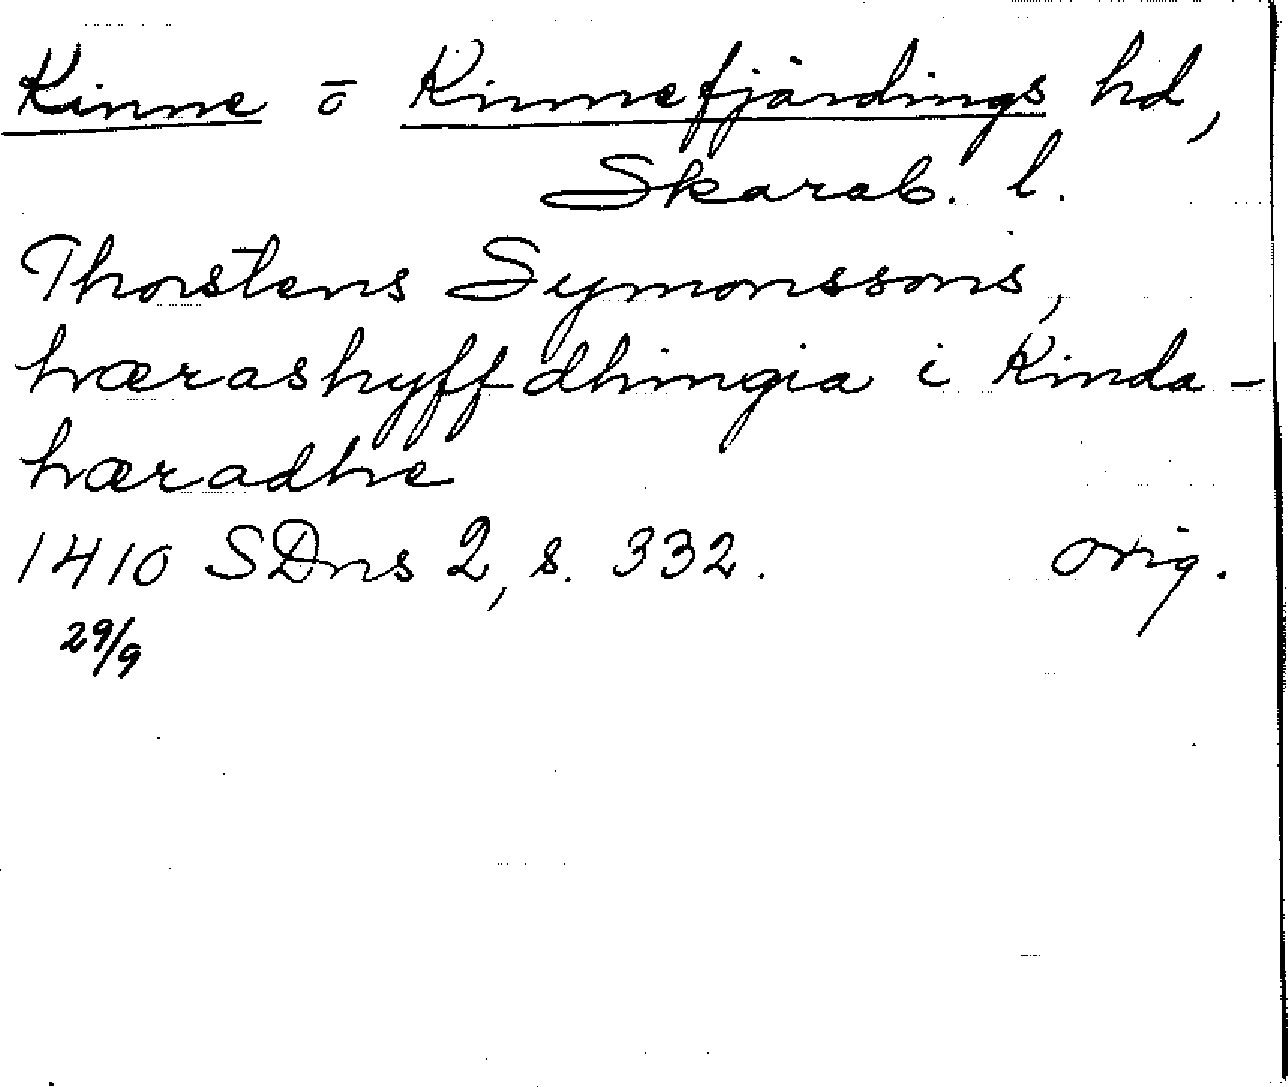 Kinne o Kinnefjärdings hd,
Skarab. l.
Thorstens Symonssons,
hæræshyffdhingia i Kinda-
hæradhe
1410 SDns 2, s. 332. orig.
29/9